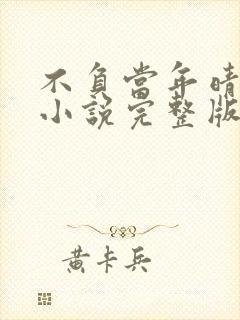 不負當年晴
小說完整版
黃卡兵